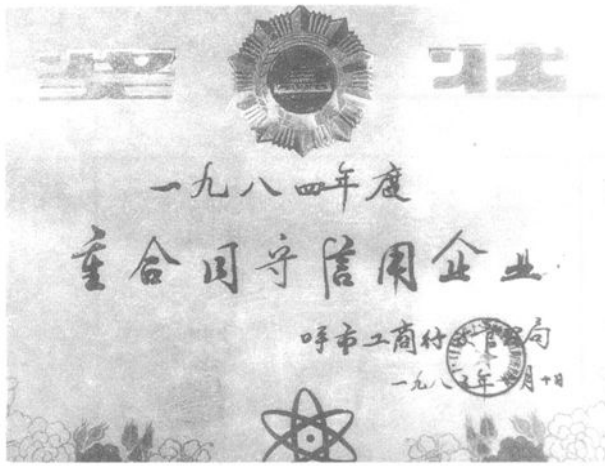 奖状
一九八四年度
重合同守信用企业
呼市工商行政管理局
一九八五年 月十日